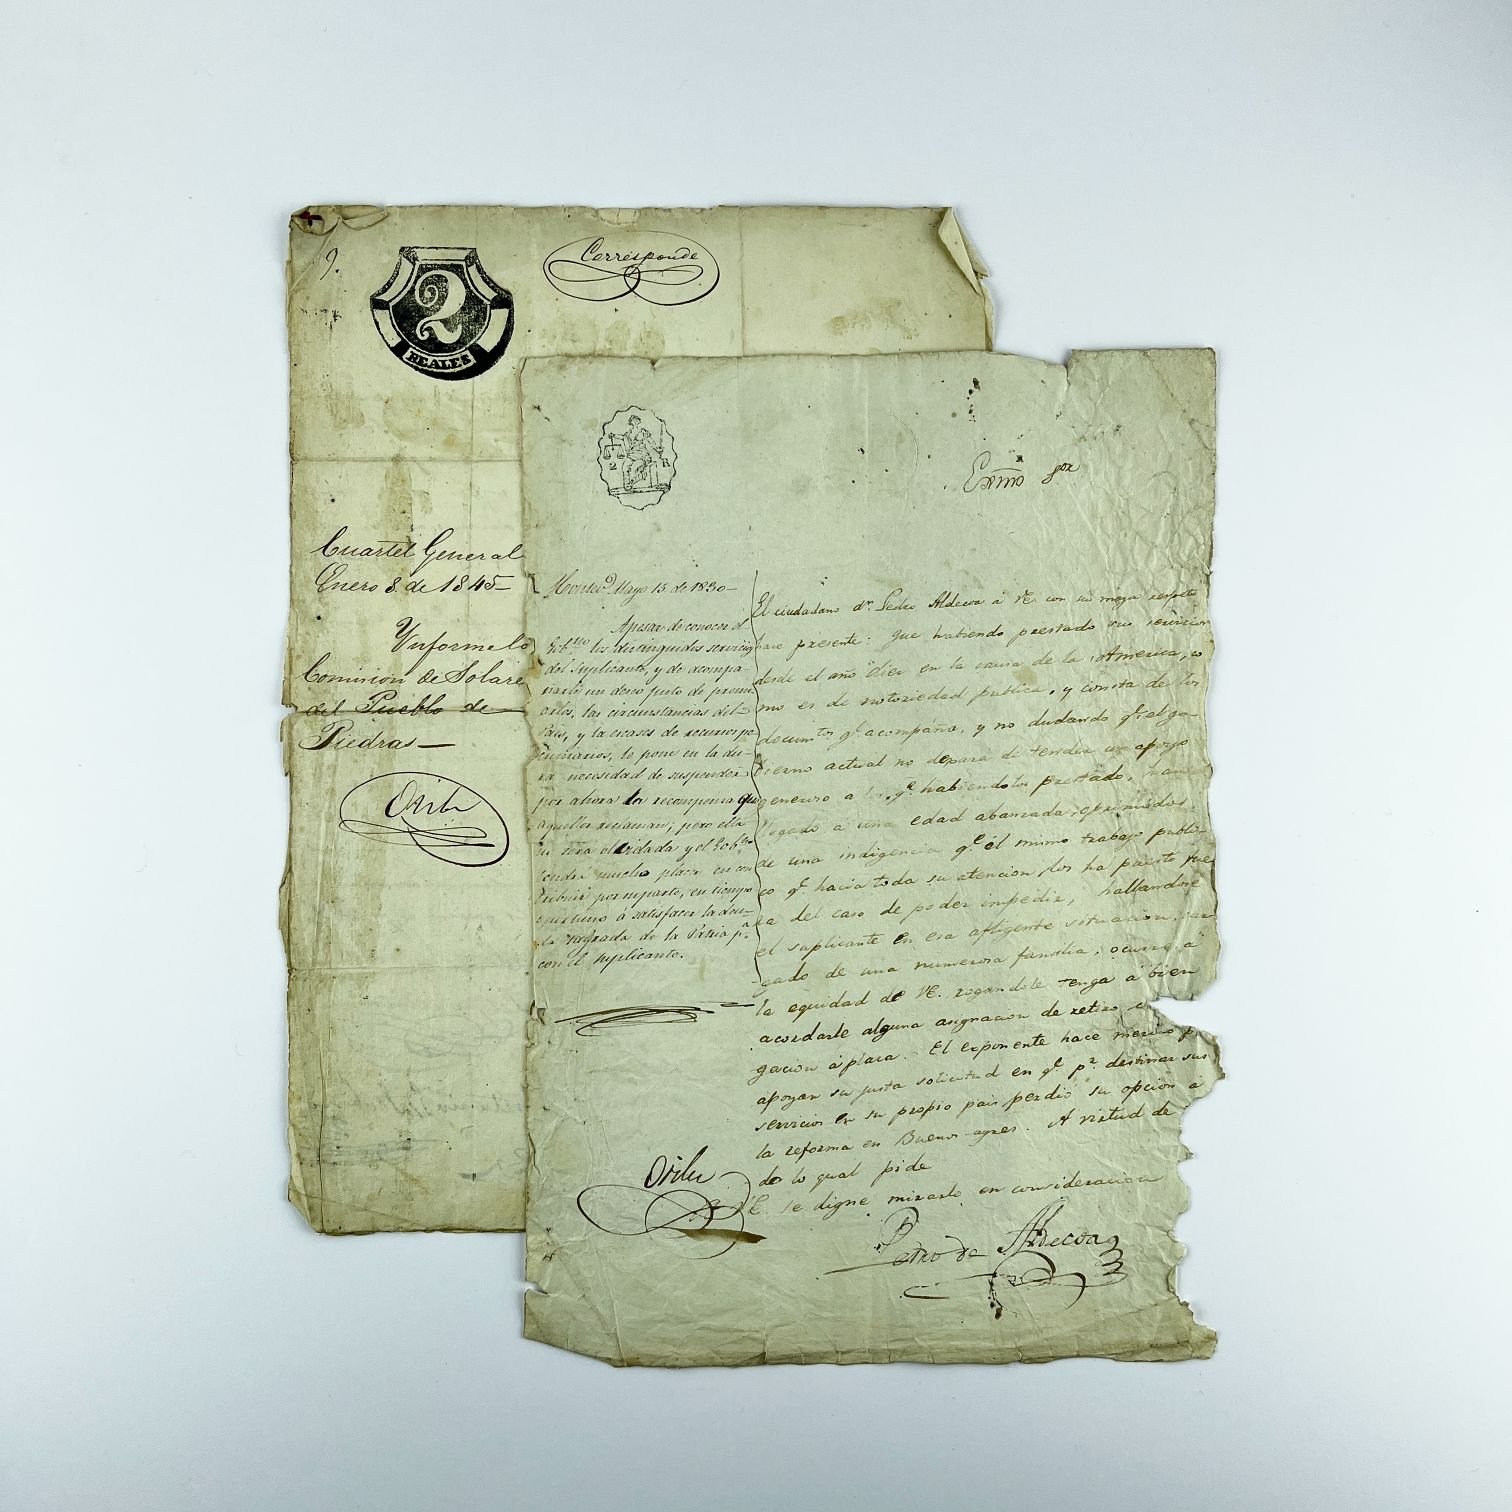 9.
2
REALES
Corresponde
Cuartel General
Enero 8 de 1845-
Ynforme lo
Comision de Solare
del Pueblo de
Piedras-
Oribe
2 R
Exmo Sor
Montevo. Mayo 15 de 1830-
Apesar de conocer el
Gobno los distinguidos servicios
del Suplicante, y de acompa-
ñarle un deseo justo de premi
arlos, las circunstancias del
Pais, y la escases de recursos pe
cuniarios, lo pone en la du-
ra necesidad de suspender
por ahora la recompensa que
aquellos reclaman; pero ella
no será olvidada y el Gobno
tendrá mucho placer en con
tribuir por su parte, en tiempo
oportuno á satisfacer la deu-
da sagrada de la Patria pa
con el suplicante.
Oribe
El ciudadano dn. Pedro Aldecoa á VE. con su mayor respeto
hace presente: que habiendo prestado sus servicios
desde el año diez en la causa de la America, co
mo es de notoriedad publica, y consta de los
documtos qe. acompaña, y no dudando qe. el go-
bierno actual no dejará de tender un apoyo
generoso a los qe. habiendolos prestado, han
llegado á una edad abanzada, oprimidos
de una indigencia qe. el mismo trabajo publi-
co qe. hacia toda su atencion, los ha puesto fue
ra del caso de poder impedir; hallandose
el suplicante en esa afligente situacion, car
gado de una numerosa familia; ocurre á
la equidad de VE. rogandole tenga á bien
acordarle alguna asignacion de retiro
gacion á plaza. El exponente hace merito
apoyar su justa solicitud en qe. pr. destinar sus
servicios en su propio pais perdió su opcion á
la reforma en Buenos-ayres. A virtud de
de lo qual pide
VE. se digne mirarlo en consideracion
Pedro de Aldecoa